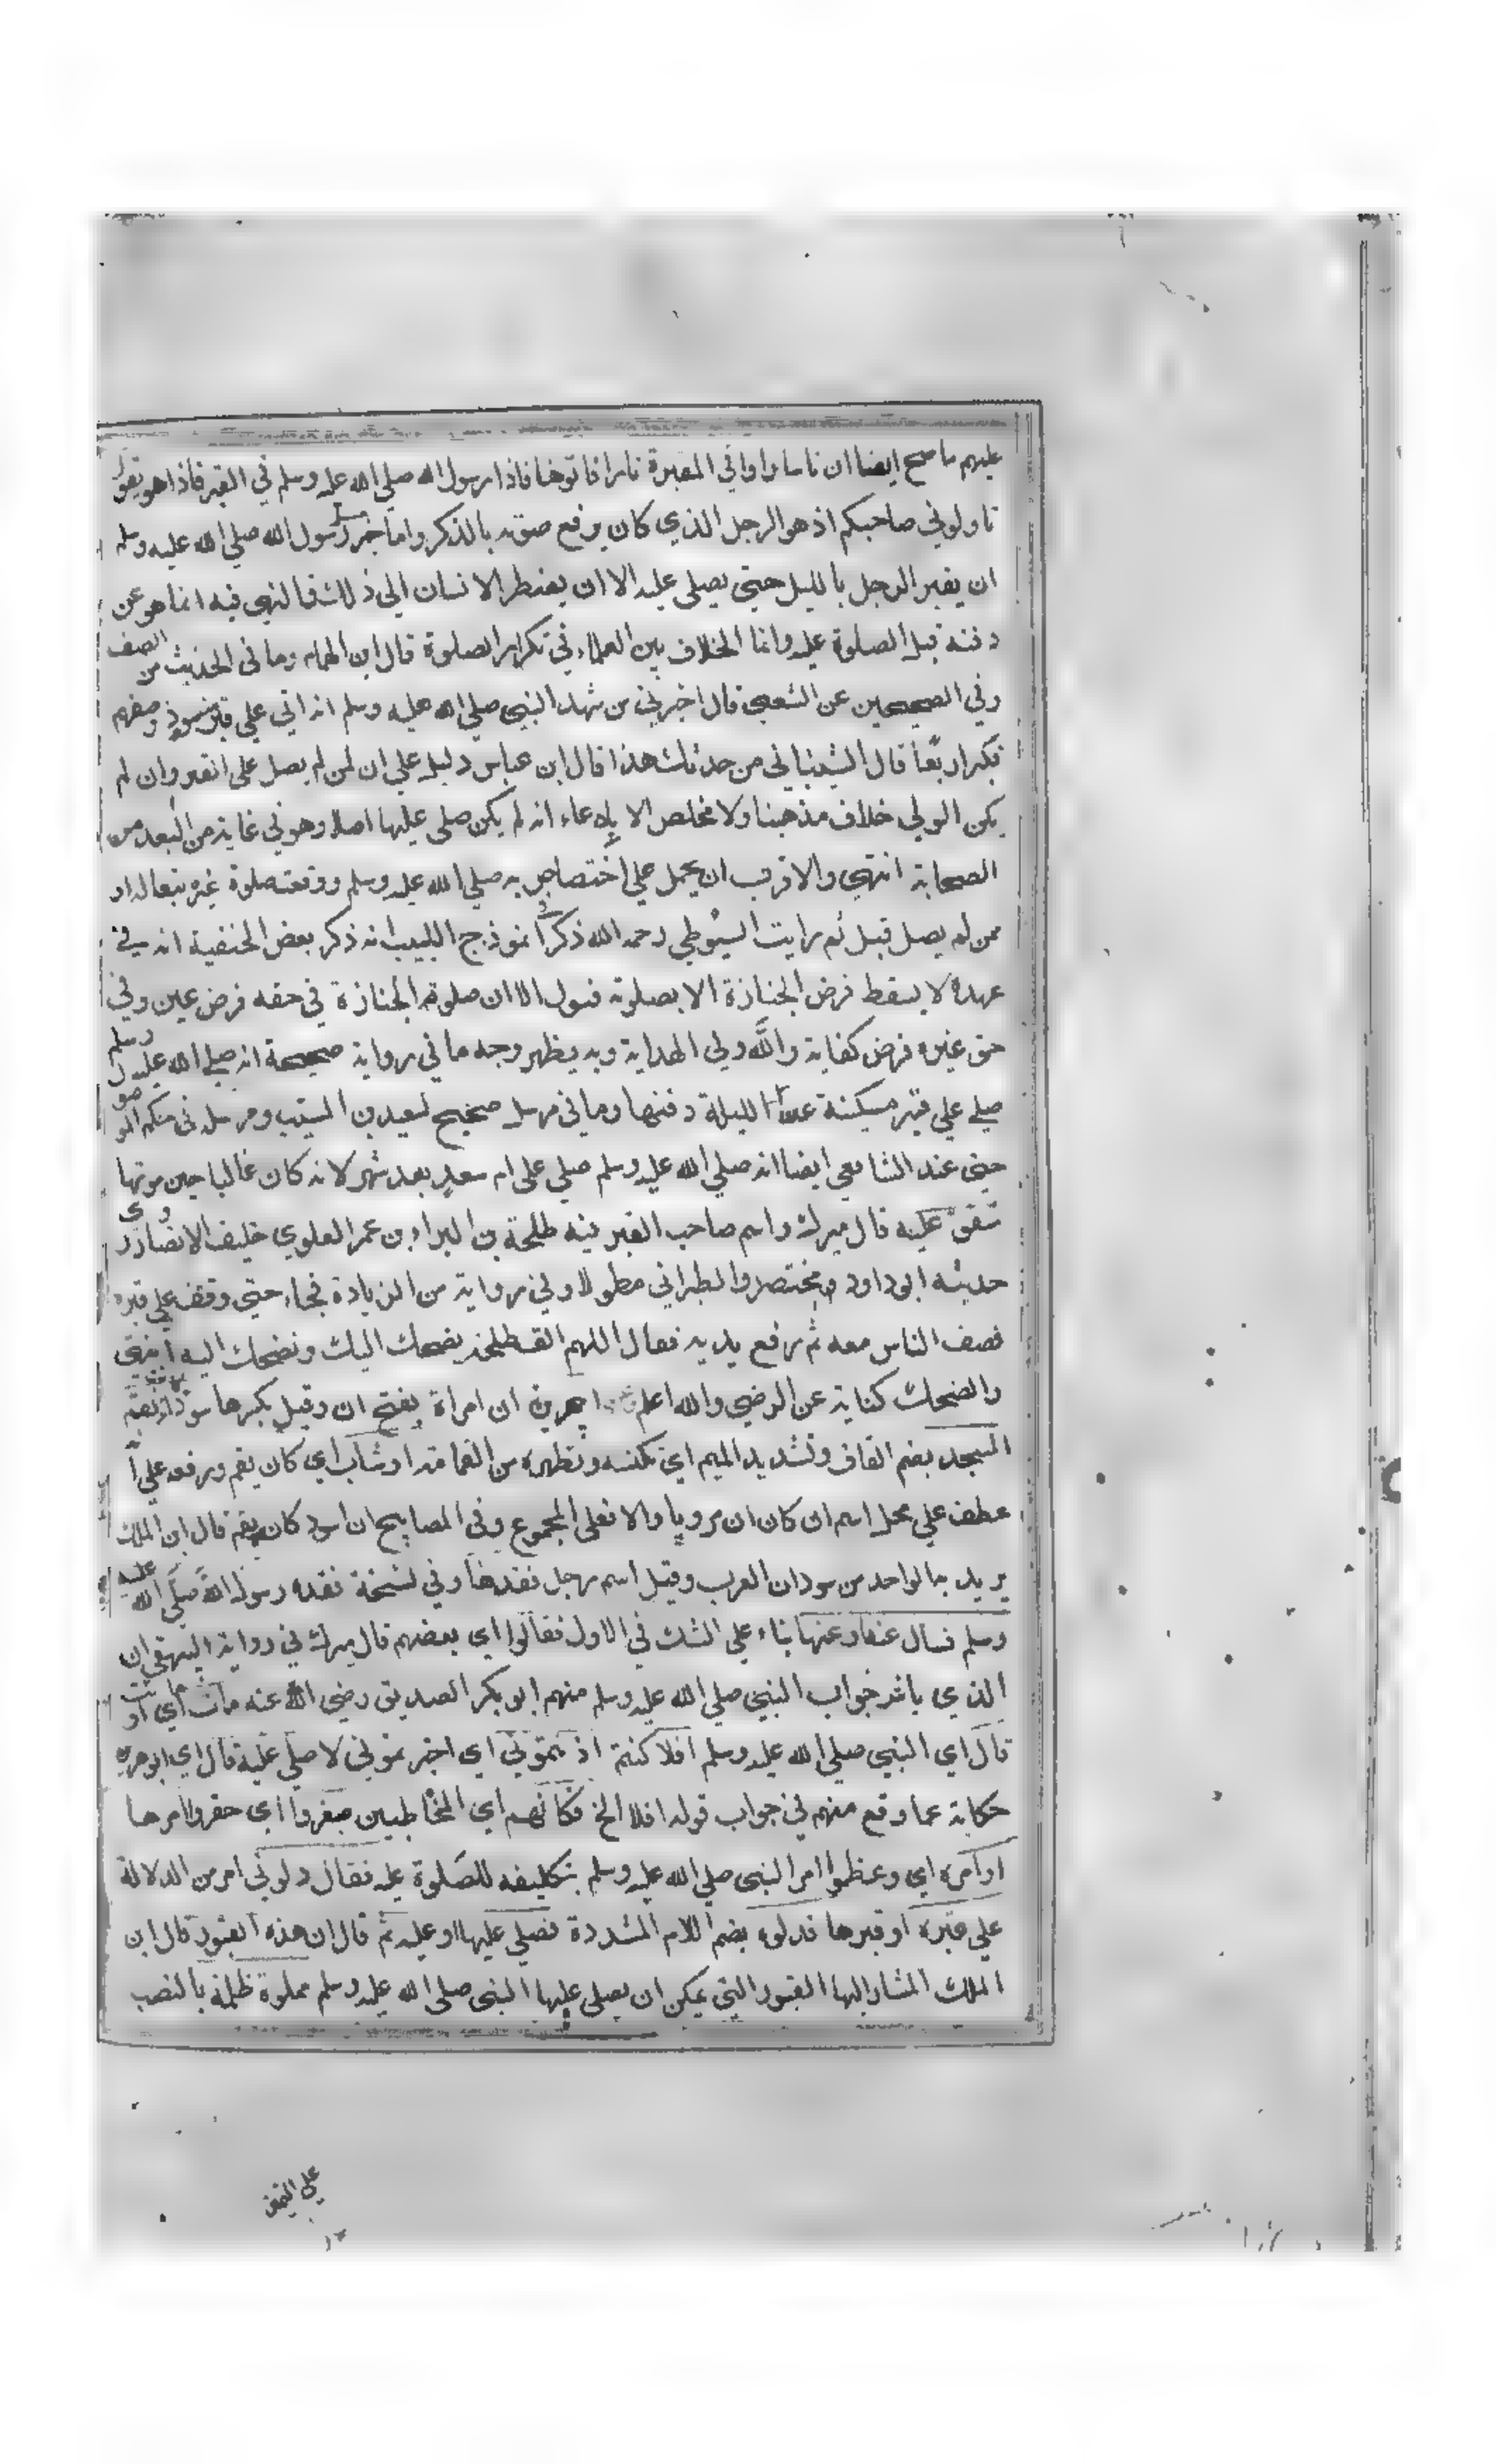 عليهم ما صح ايضا ان ناسا راوا في المقبرة نارا فاتوها فاذا رسول الله صلي الله عليه وسلم في القبر فاذا هو يقول
ناولوني صاحبكم اذ هو الرجل الذي كان يرفع صوته بالذكر واما خبر مسلم رسول الله صلي الله عليه وسلم
ان يقبر الرجل بالليل حتي يصلي عليه الا ان يضطر الانسان الي ذلك فالنهي فيه انما هو عن
دفنه قبل الصلوة عليه وانما الخلاف بين العلماء في تكرار الصلوة قال ابن الهمام وما في الحديث من الصف
وفي الصحيحين عن الشعبي قال اخبرني من شهد النبي صلي الله عليه وسلم انه اتي علي قبر منبوذ وصفهم
فكبر اربعا قال الشيباني من حدثك هذا قال ابن عباس دليل علي ان لمن لم يصل علي القبر وان لم
يكن الولي خلاف مذهبنا ولا مخلص الا بادعاء انه لم يكن صلي عليها اصلا وهو في غاية من البعد من
الصحابة انتهي والاقرب ان يحمل علي اختصاص به صلي الله عليه وسلم ووقعت صلوة غيره تبعا له او
ممن لم يصل قبل ثم رايت السيوطي رحمه الله ذكر انموذج اللبيب انه ذكر بعض الحنفية انه في
عهده لا يسقط فرض الجنازة الا بصلوته فيول الا ان صلوة الجنازة في حقه فرض عين وفي
حق غيره فرض كفاية والله ولي الهداية وبه يظهر وجه ما في رواية صحيحة انه صلي الله عليه وسلم
صلي علي قبر مسكينة الليلة دفنها وما في مرسل صحيح لسعيد بن المسيب ومرسله في حكم الموصو
حتي عند الشافعي ايضا انه صلي الله عليه وسلم صلي علي ام سعد بعد شهر لانه كان غائبا حين موتها
متفق عليه قال ميرك واسم صاحب القبر فيه طلحة بن البراء بن عمر العلوي حليف الانصار روي
حديثه ابو داود مختصرا والطبراني مطولا وفي رواية من الزيادة فجاء حتي وقف علي قبره
فصف الناس معه ثم رفع يديه فقال اللهم الق طلحة يضحك اليك وتضحك اليه انتهي
والضحك كناية عن الرضي والله اعلم ان امراة بفتح ان وقيل بكسرها سوداء تقم
المسجد بضم القاف وتشديد الميم اي تكنسه وتطهره من القمامة او شاب اي كان يقم ورفعه علي
عطف علي محل اسم ان كان ان مرويا والا فعلي المجموع وفي المصابيح ان اسود كان يقم قال ابن الملك
يريد به الواحد من سودان العرب وقيل اسم رجل ففقدها وفي نسخة ففقده رسول الله صلي الله عليه
وسلم فسال عنها وعنها بناء علي الشك في الاول فقالوا اي بعضهم قال ميرك في رواية البيهقي ان
الذي باشر جواب النبي صلي الله عليه وسلم منهم ابو بكر الصديق رضي الله عنه مات اي او ماتت
قال اي النبي صلي الله عليه وسلم افلا كنتم اذنتموني اي اخبرتموني لاصلي عليه قال اي ابو هريرة
حكاية عما وقع منهم في جواب قوله افلا الخ فكانهم اي المخاطبين صغروا اي حقروا امرها
او امره اي وعظموا امر النبي صلي الله عليه وسلم بتكليفه للصلوة عليه فقال دلوني امر من الدلالة
علي قبره او قبرها فدلوه بضم اللام المشددة فصلي عليها او عليه ثم قال ان هذه القبور قال ابن
الملك المشار اليها القبور التي يمكن ان يصلي عليها النبي صلي الله عليه وسلم مملوة ظلمة بالنصب
علي التميز